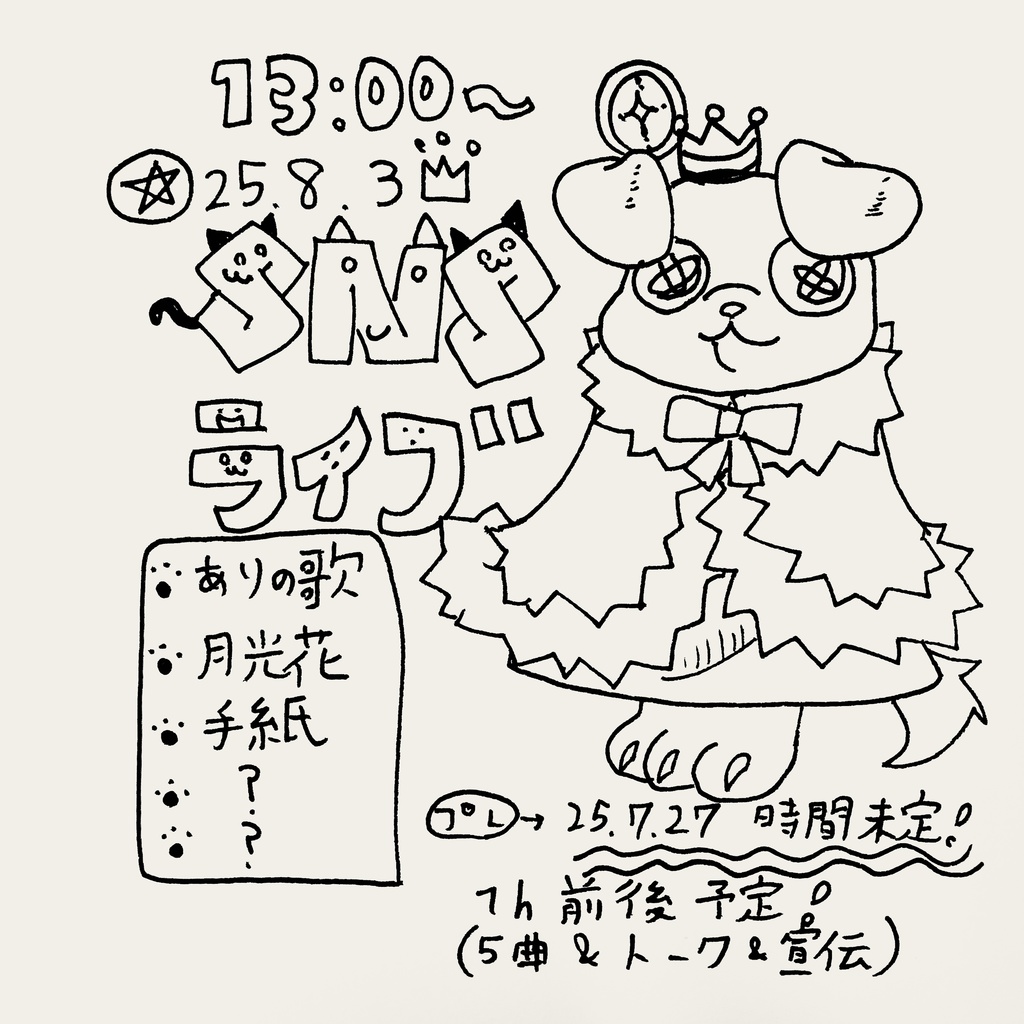 13:00～
25.8.3
SNS
ライブ
ありの歌
月光花
手紙
?
?
プレ→25.7.27 時間未定!
1h 前後 予定!
(5曲&トーク&宣伝)